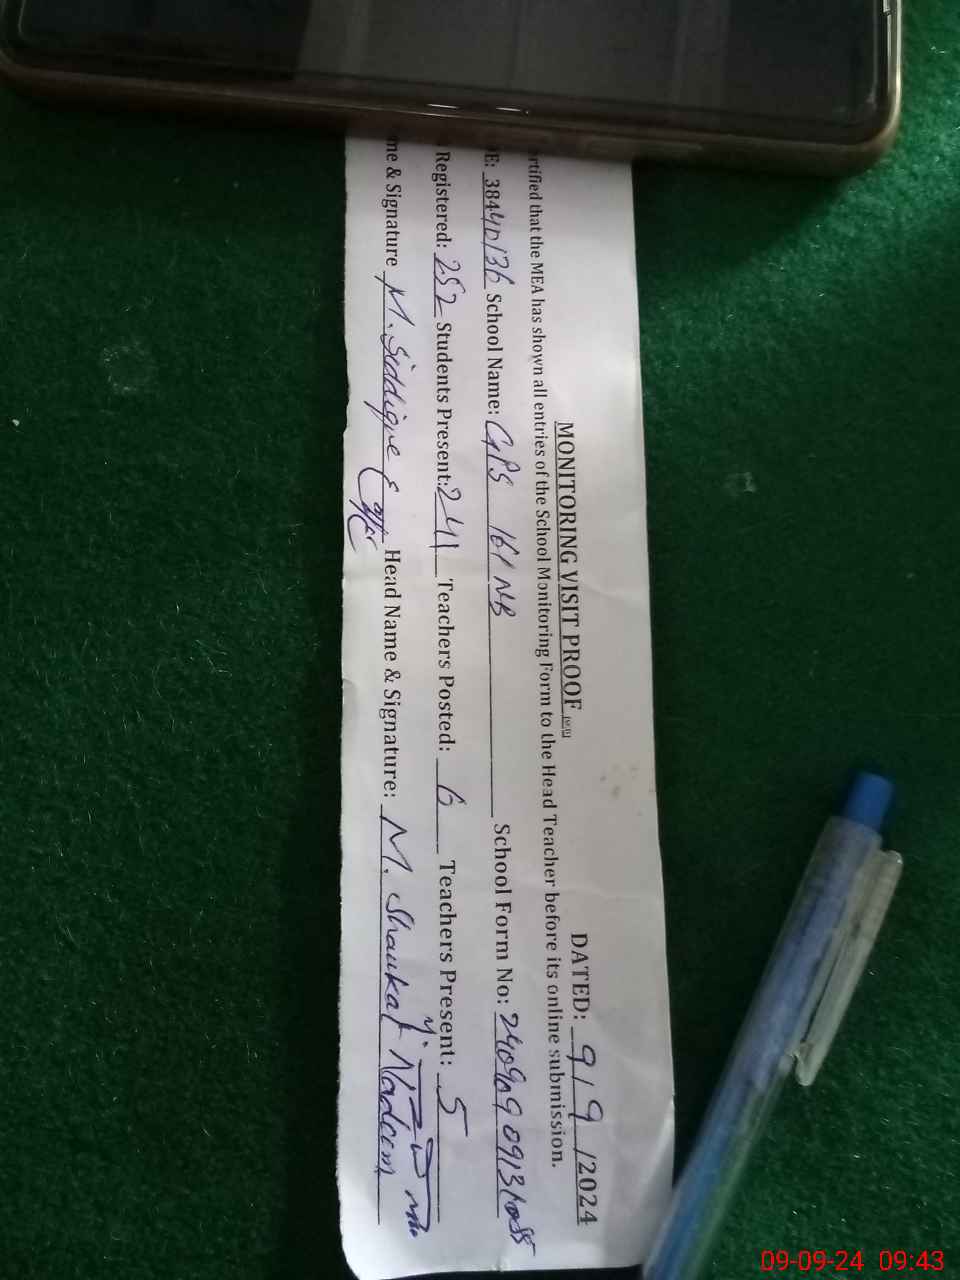 MONITORING VISIT PROOF DATED: 9/9/2024
rtified that the MEA has shown all entries of the School Monitoring Form to the Head Teacher before its online submission.
E: 38440136 School Name: GPS 161 NB School Form No:
Registered: 252 Students Present: 241 Teachers Posted: 6 Teachers Present: 5
me & Signature M. Siddique Head Name & Signature: M. Shaukat Nadeem
09-09-24 09:43